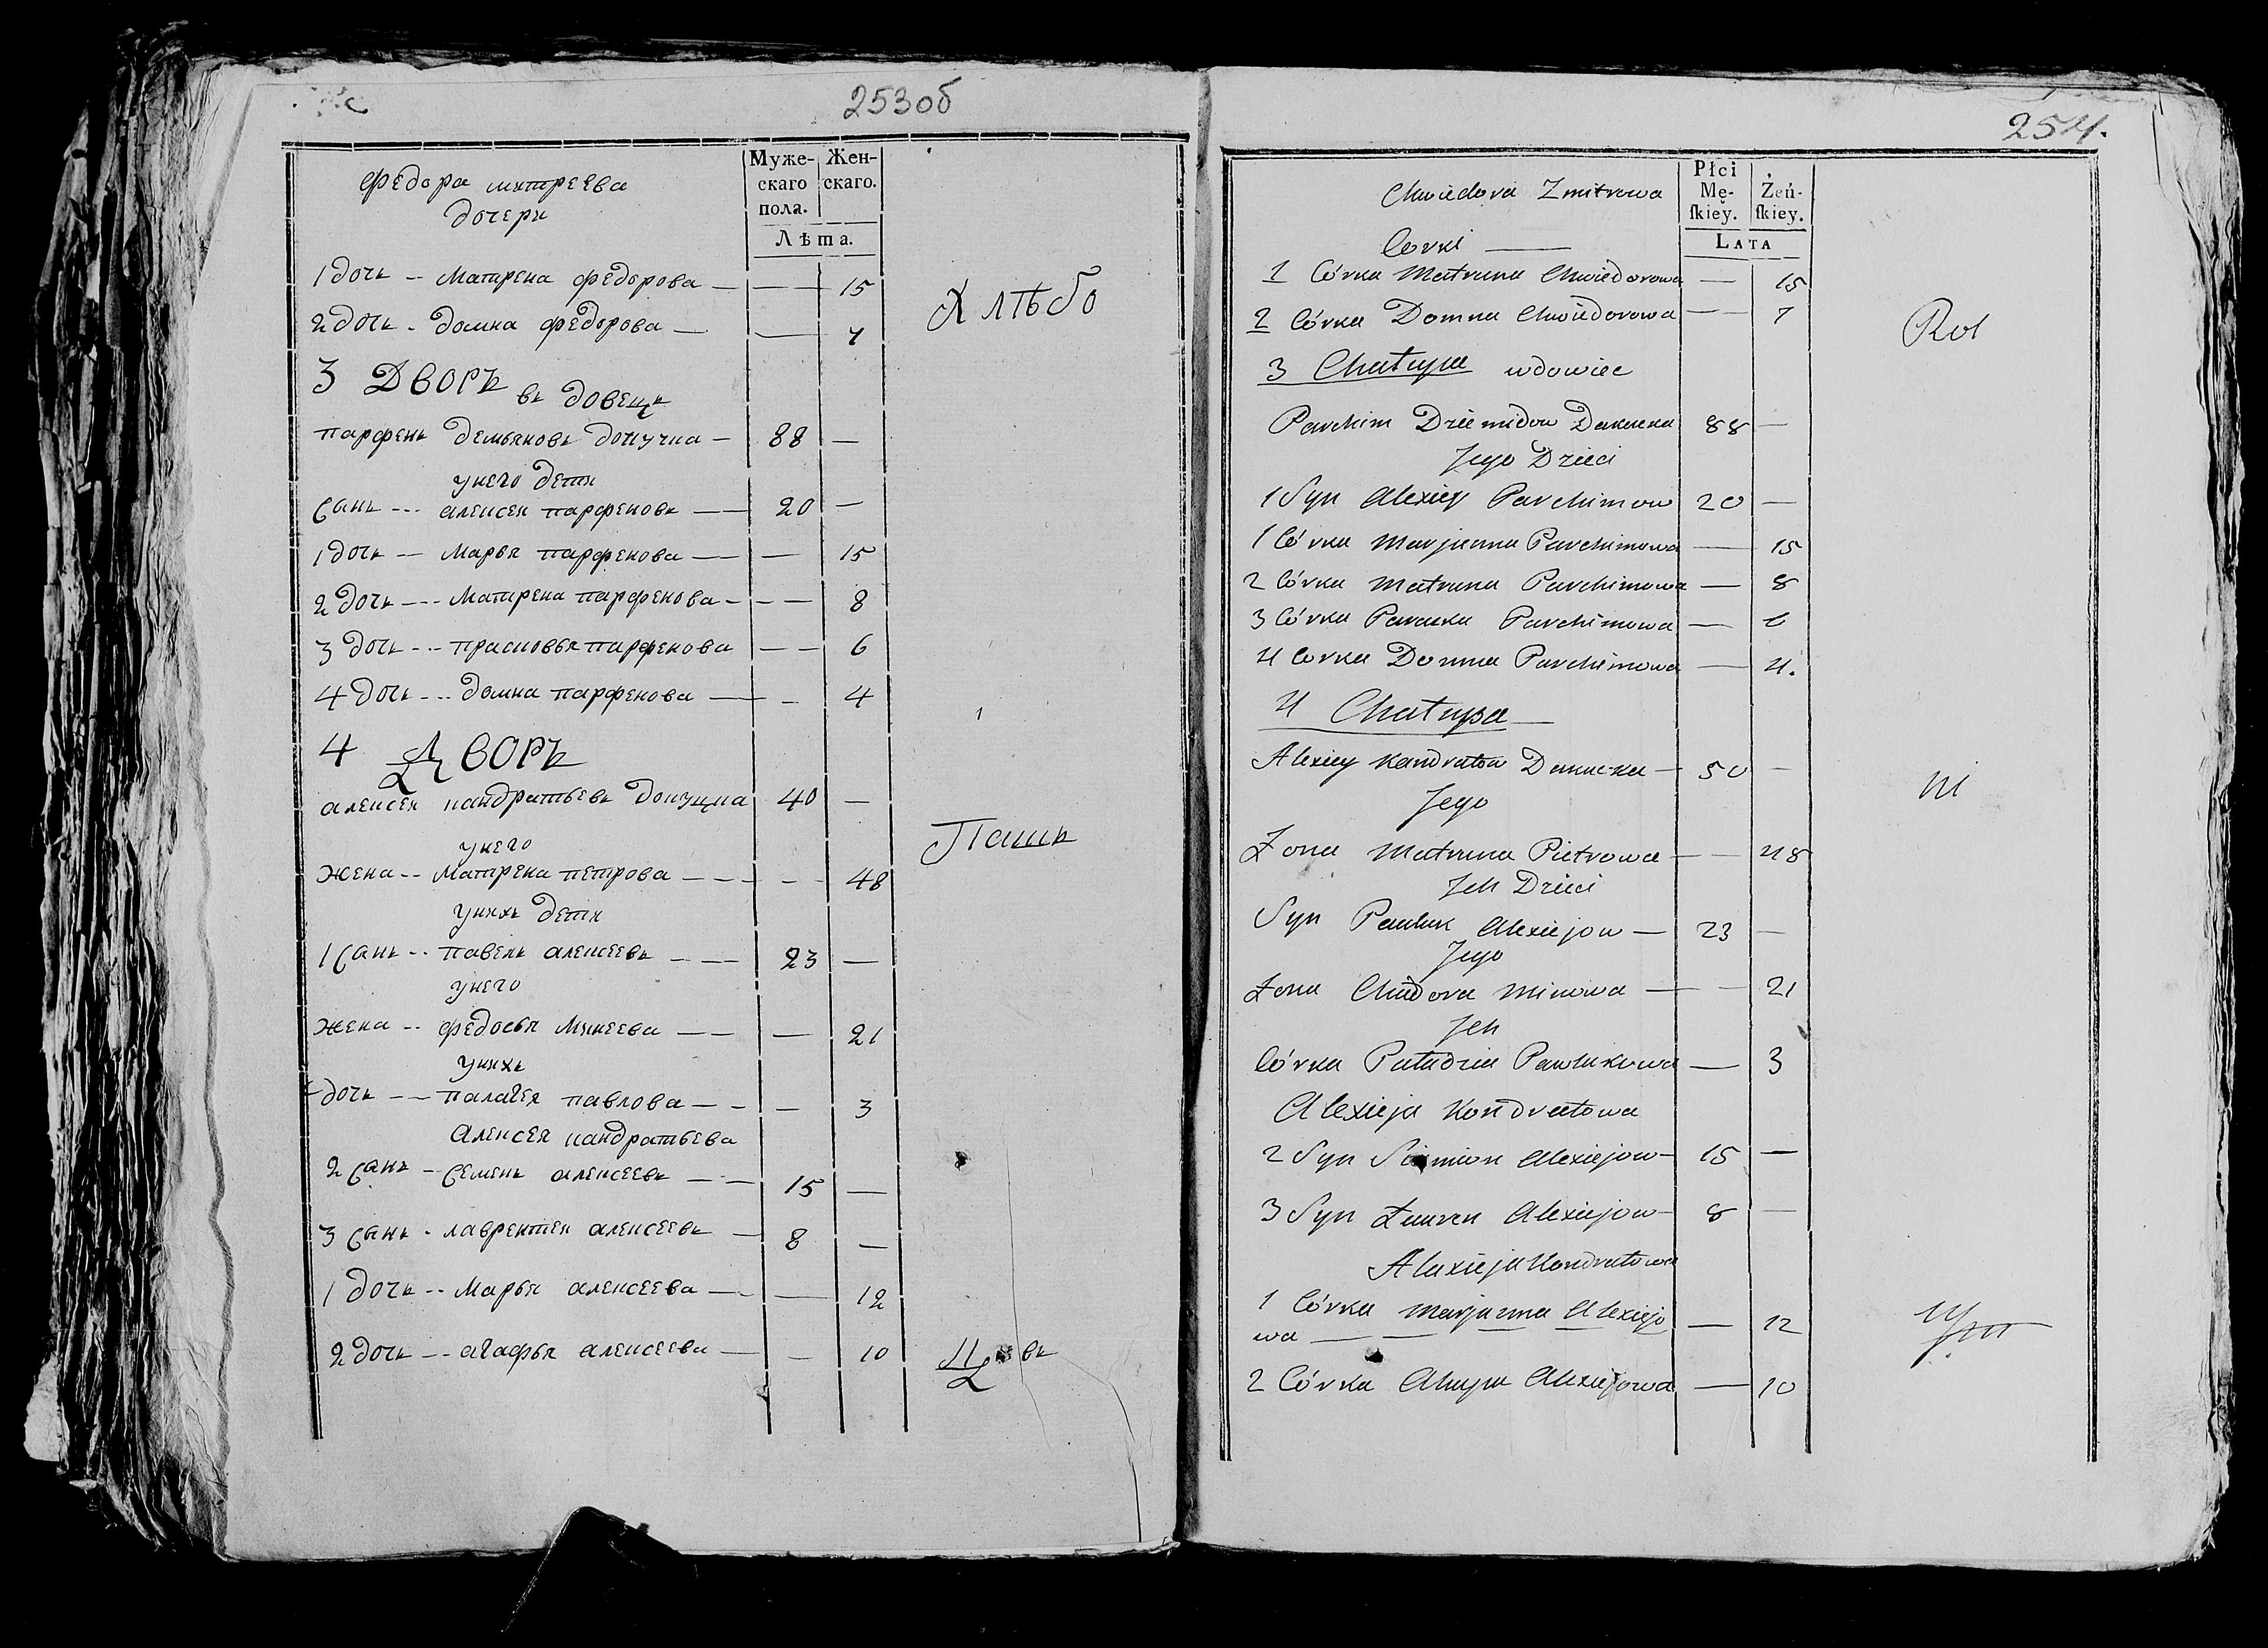 253об
Муже-
скаго
пола.
Жен-
скаго.
Лѣта.
Федора митреева
дочери
1 дочь -- Матрена федорова — — 15
2 дочь - домна федорова — — 7
Хлѣбо
3 Дворъ въ довецъ
парфенъ демьяновъ докучка — 88 —
унего дети
Сынъ --- алексеи парфеновъ — 20 —
1 дочь -- Марья парфенова — — 15
2 дочь --- Матрена парфенова - — 8
3 дочь --- прасковья парфенова — 6
4 дочь --- домна парфенова — - 4
4 Дворъ
алексеи кандратьевъ докучка 40 —
унего
Пашъ
жена -- Матрена петрова — — 48
унихъ дети
1 Сынъ -- павелъ алексеевъ — 23 —
унего
жена -- федосья Минеева — — 21
унихъ
дочь -- палагея павлова — — 3
Алексея кандратьева
2 Сынъ - Семенъ алексеевъ — 15 —
3 Сынъ - лаврентеи алексеевъ — 8 —
1 дочь -- Марья алексеева — — 12
2 дочь -- агафья алексеева — — 10
254.
Płci
Mę-
ſkiey.
Żeń-
ſkiey.
LATA
Chwiedora Zmitrowa
Corki —
1 Córka Matruna Chwiedorowa — 15
2 Córka Domna Chwiedorowa — 7
Rol
3 Chałupa wdowiec
Parchim Dziemidow Dakucka 88 —
Jego Dzieci
1 Syn Alexiey Parchimow 20 —
1 Córka Marjanna Parchimowa — 15
2 Córka Matruna Parchimowa — 8
3 Córka Parauka Parchimowa — 6
4 Corka Domna Parchimowa — 4.
4 Chałupa
Alexiey Kandratow Dakucka — 50 —
ni
Jego
Żona Matruna Pietrowa — 48
Jch Dzieci
Syn Pauluk Alexiejow — 23 —
Jego
Żona Chwiedora Minowa — — 21
Jch
Córka Paładzia Pawlukowa — 3
Alexieja Kondratowa
2 Syn Siemion Alexiejow — 15 —
3 Syn Ławren Alexiejow — 8 —
Alexieja Kondratowa
1 Córka Marjanna Alexiejo
wa — — — — 12
2 Córka Ahapa Alexiejowa — 10